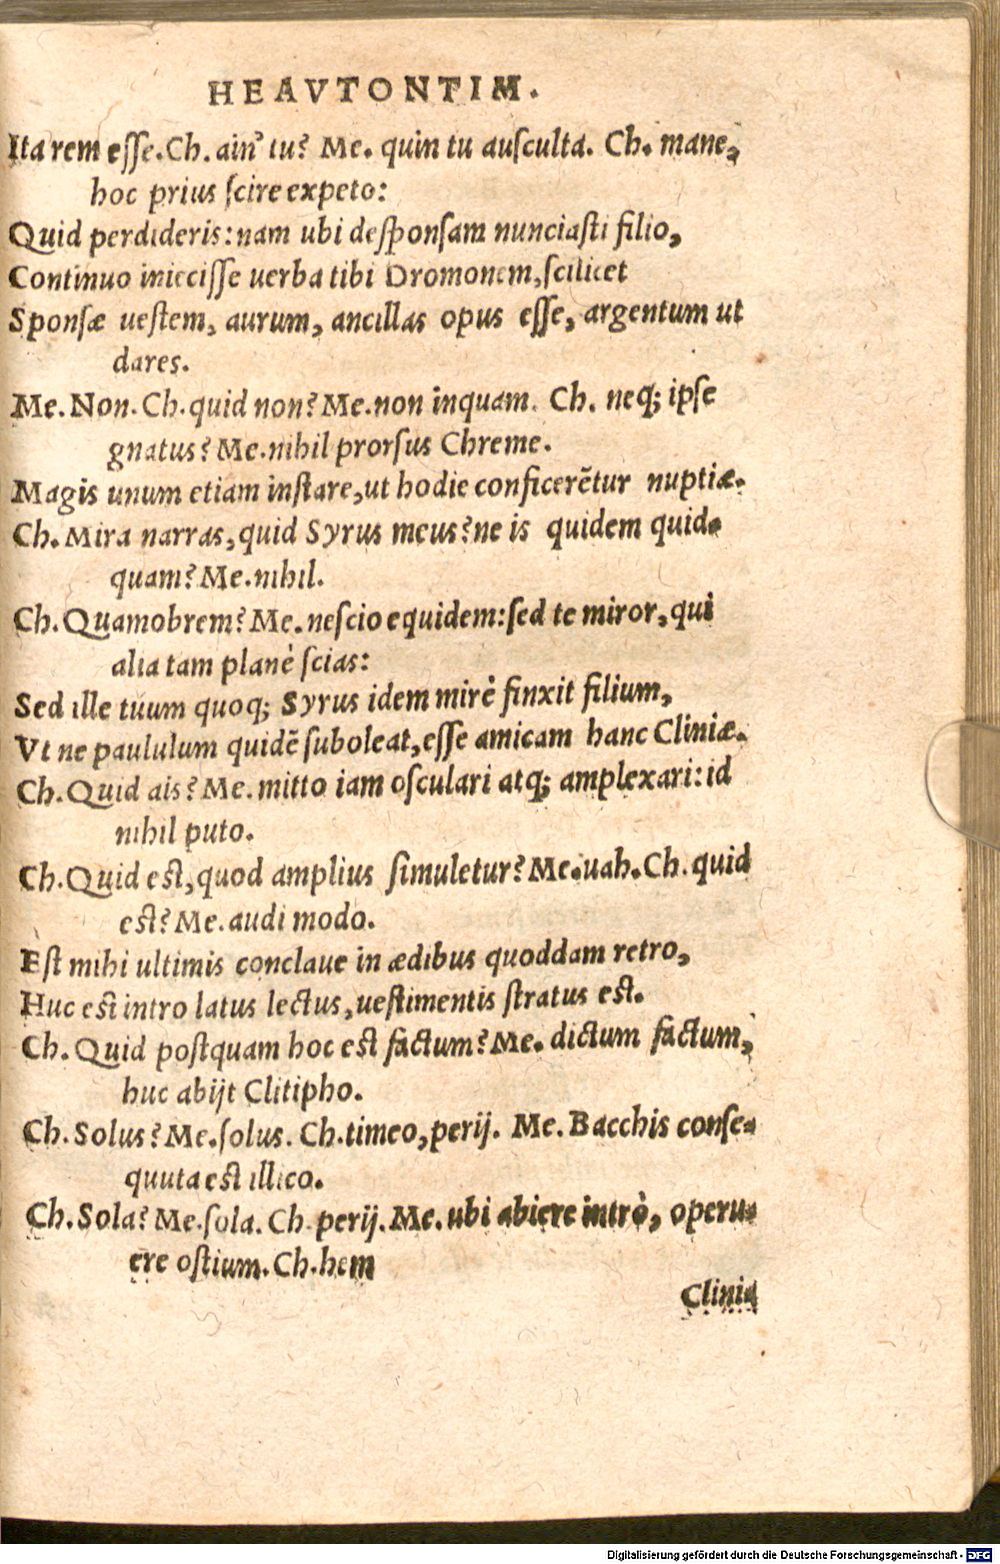 HEAVTONTIM.
Ita rem eſſe. Ch. ain' tu? Me. quin tu auſculta. Ch. mane,
hoc prius ſcire expeto:
Quid perdideris: nam ubi deſponſam nunciaſti filio,
Continuo inieciſſe uerba tibi Dromonem, ſcilicet
Sponſæ ueſtem, aurum, ancillas opus eſſe, argentum ut
dares.
Me. Non. Ch. quid non? Me. non inquam. Ch. neq; ipſe
gnatus? Me. nihil prorſus Chreme.
Magis unum etiam inſtare, ut hodie conficerētur nuptiæ.
Ch. Mira narras, quid Syrus meus? ne is quidem quid-
quam? Me. nihil.
Ch. Quamobrem? Me. neſcio equidem: ſed te miror, qui
alia tam planè ſcias:
Sed ille tuum quoq; Syrus idem mirè finxit filium,
Vt ne paululum quidē ſuboleat, eſſe amicam hanc Cliniæ.
Ch. Quid ais? Me. mitto iam oſculari atq; amplexari: id
nihil puto.
Ch. Quid eſt, quod amplius ſimuletur? Me. uah. Ch. quid
eſt? Me. audi modo.
Eſt mihi ultimis conclaue in ædibus quoddam retro,
Huc eſt intro latus lectus, ueſtimentis ſtratus eſt.
Ch. Quid poſtquam hoc eſt factum? Me. dictum factum,
huc abijt Clitipho.
Ch. Solus? Me. ſolus. Ch. timeo, perij. Me. Bacchis conſe-
quuta eſt illico.
Ch. Sola? Me. ſola. Ch. perij. Me. ubi abiere intrò, operu-
ere oſtium. Ch. hem
Clinia
Digitalisierung gefördert durch die Deutsche Forschungsgemeinschaft - DFG